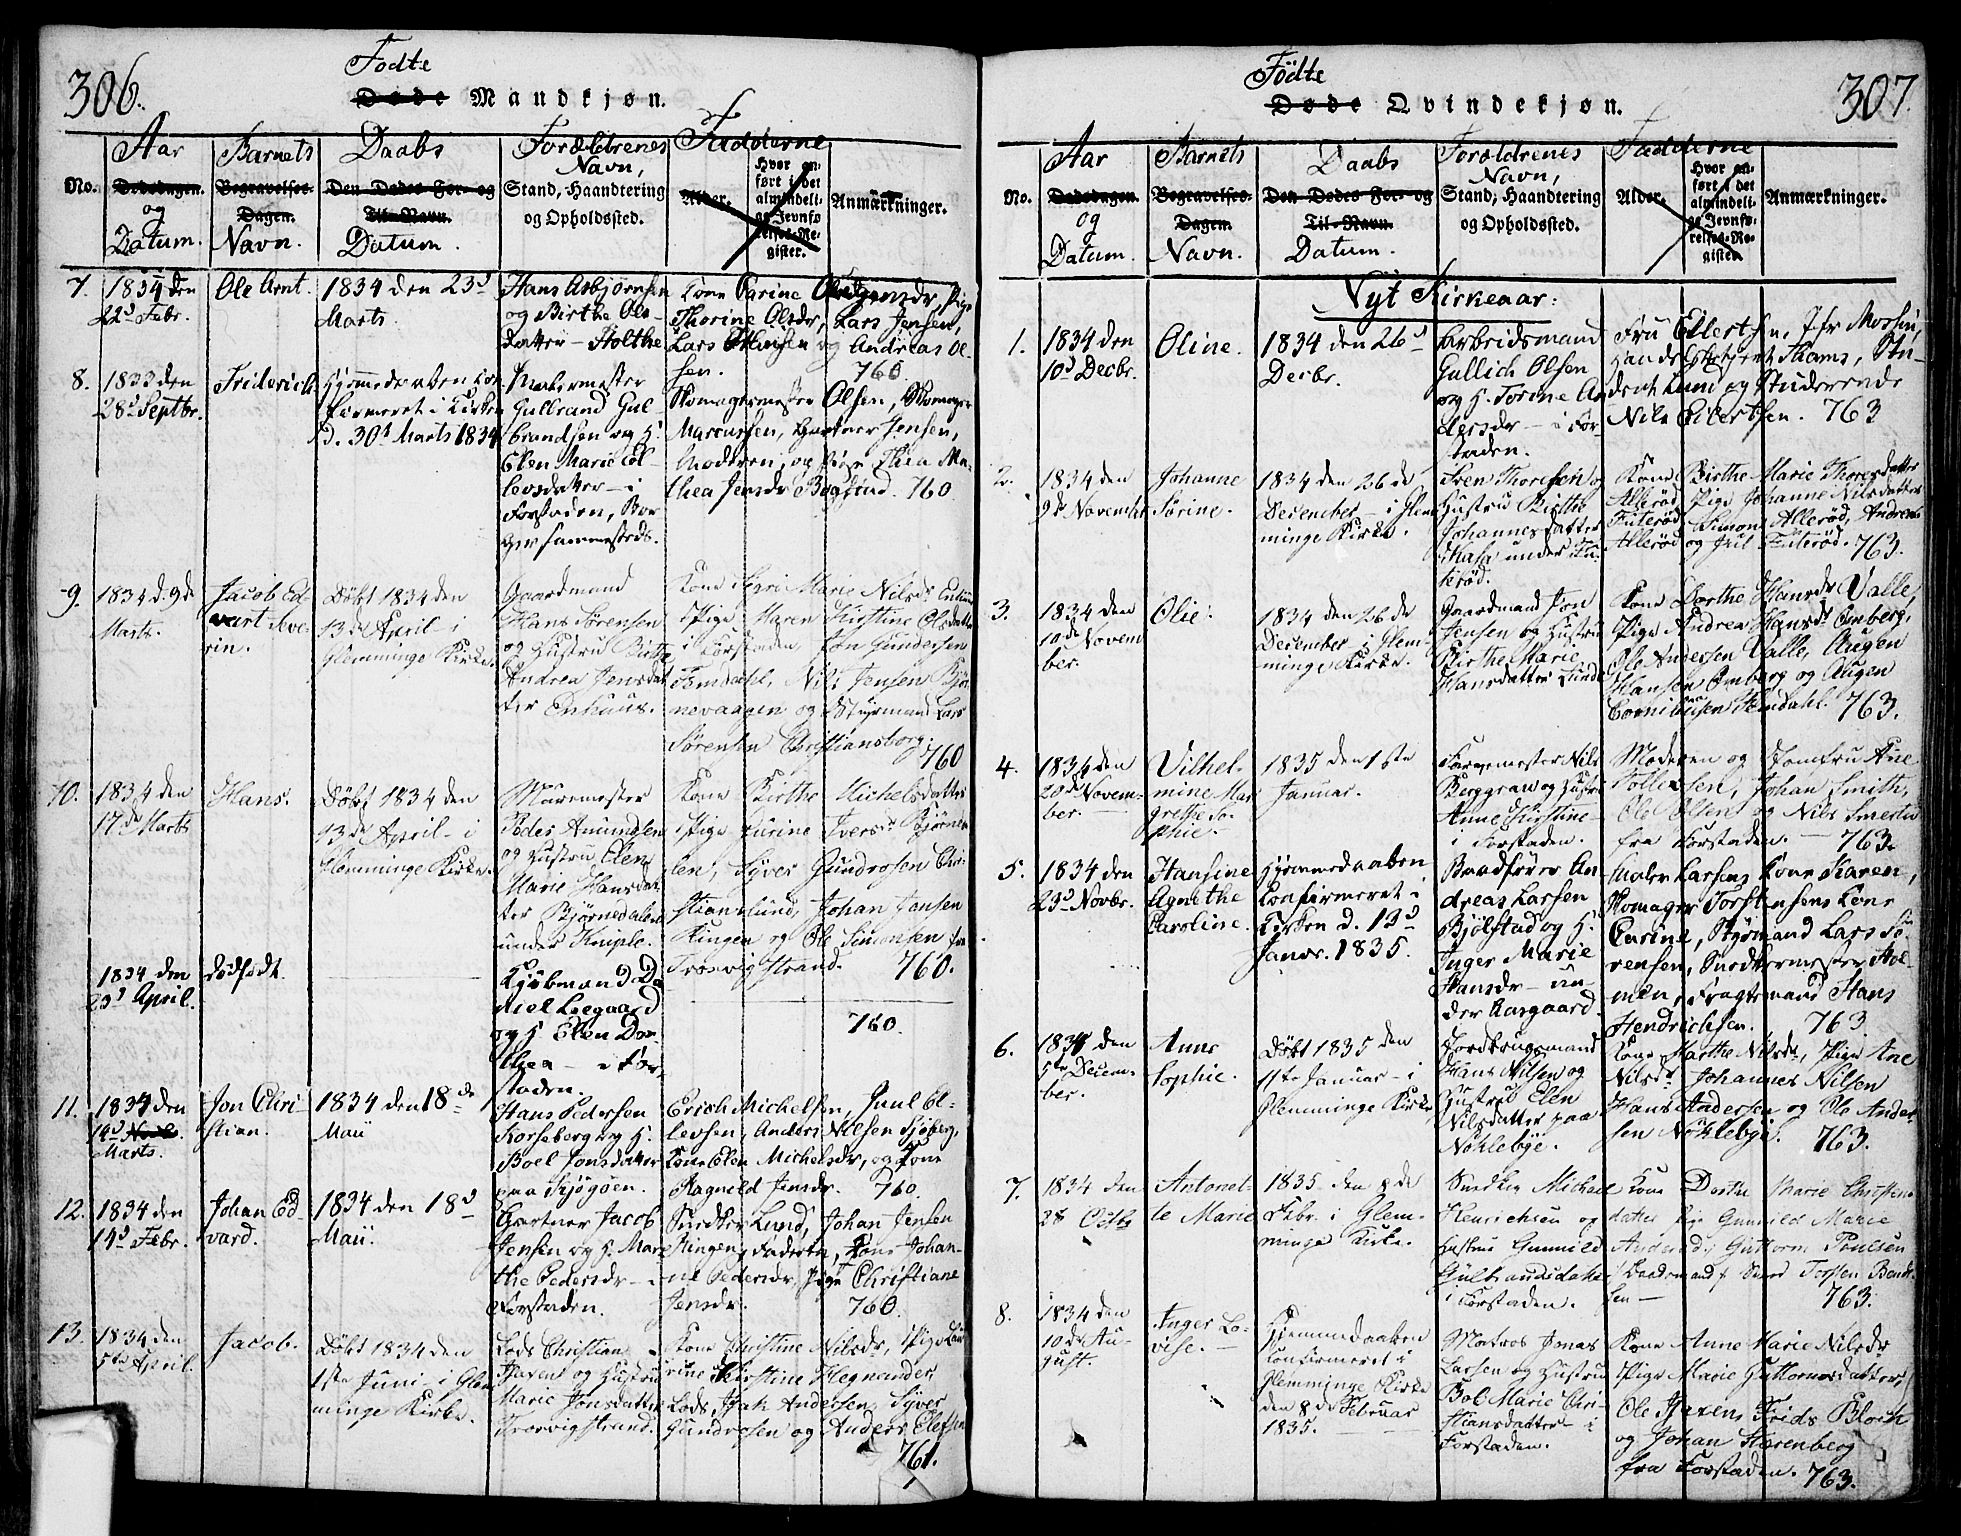 306.
Fødte
Døde Mandkjøn.
No.
Aar
Dødsdagen.
og
Datum.
Barnets
Begravelses-
Dagen.
Navn.
Daabs
Den Dødes For- og
Til-Navn.
Datum.
Forældrenes
Navn,
Stand, Haandtering
og Opholdssted.
Fadderne
Alder.
Hvor an-
ført i det
almindeli-
ge Jevnfø-
relses-Re-
gister.
Anmærkninger.
7.
1834 den
22d Febr.
Ole Arnt.
1834 den 23d
Marts.
Hans Asbjørnsen
og Birthe Ols-
datter - Holthe
Kone Karine
Thorine Olsdr, Lars Jensen,
og Andreas Ol-
sen.
760
8.
1833 den
28d Septbr.
Friderich
Hjemmedøbt
i Kirken
d. 30d Marts 1834
Gulbrand Gul-
brandsen og H.
Elen Marie El-
levsdatter - i
Forstaden,
Skomagermester Olsen, Skomager
Marcussen, Gartner Jensen,
Moderen, og Pige Thea Ma-
thea Jensdr 760
9.
1834 d. 9de
Marts.
Jacob Ed-
vart Seve-
rin.
Døbt 1834 den
13de April - i
Glemminge Kirke.
Gaardmand
Hans Sørensen
og Hustru Birthe
Andrea Jensdat-
ter Enhuus.
Kone Siri Marie Nilsdr Enhuus
Pige Maren Kirstine Olsdatter
i Forstaden, Jon Gundersen
Nils Jensen Bjør-
nevaagen og Styrmand Lars
Sørensen Christiansborg.
760
10.
1834 den
17de Marts
Hans.
Døbt 1834 den
13de April - i
Glemminge Kirke.
Muremester
Peder Amundsen
og Hustru Elen
Marie Hansdat-
ter Bjørnedalen
under Kniple.
Kone Birthe Michelsdatter
Pige Gurine Iversdr Bjørneda-
len, Syver Gundrosen Chri-
stianslund, Johan Jensen
Ringen og Ole Simonsen fra
Trosvigstrand. 760.
1834 den
29d April.
Dødfødt.
Kjøbmand Da-
niel Leegaard
og H. Elen Do-
thea - i For-
staden.
760.
11.
1834 den
14d Novb.
Marts.
Jon Chri-
stian.
1834 den 18de
Maii
Hans Pedersen
Korseberg og H.
Boel Jonsdatter
paa Kjøgøen.
Erich Michelsen, Juul El-
levsen, Anders Nilsen Sjøberg,
Kone Elen Michelsdr, og Kone
Ragnild Jensdr. 760.
12.
1834 den
14d Febr.
Johan Ed-
vard.
1834 den 18d
Maii.
Gartner Jacob
Jensen og H. Mare-
the Pedersdr - i
Forstaden.
Snedker Lund, Johan Jensen
Ringen, Faderen, Kone Johan-
ne Pedersdr, Pige Christiane
Jensdr. 760.
13.
1834 den
5te April.
Jacob.
Døbt 1834 den
1ste Junii - i Glem-
minge Kirke.
Lods Christian
og Hustru
Marie Jonsdatter
Trosvigstrand.
Kone Christine Nilsdr, Pige Kar-
rine Kirstine Hegnander
Lods Isak Andersen, Syver
Gundrosen og Anders Elefsen
761.
307.
Fødte
Døde Qvindekjøn.
No.
Aar
Dødsdagen.
og
Datum.
Barnets
Begravelses-
Dagen.
Navn.
Daabs
Den Dødes For- og
Til-Navn.
Datum.
Forældrenes
Navn,
Stand, Haandtering
og Opholdssted.
Fadderne
Alder.
Hvor an-
ført i det
almindeli-
ge Jevnfø-
relses-Re-
gister.
Anmærkninger.
Nyt Kirkeaar:
1.
1834 den
10d Decbr.
Oline.
1834 den 26d
Decbr.
Arbeidsmand
Gullich Olsen
og H. Torine An-
dersdr - i For-
staden.
Fru Eilertsen, Jfr Mossin,
Thams, Stu-
dent Lund og Studerende
Nils Eilertsen. 763
2.
1834 den
9de Novembr
Johanne
Sørine.
1834 den 26de
December - i Glem-
minge Kirke.
Iven Thoresen og
Hustru Birthe
Johannesdatter
under Fu-
terød.
Kone Birthe Marie Thoresdatter
Allerød, Pige Johanne Nilsdatter
Futerød, Simon Allerød, Andreas
Allerød og Juel Futerød. 763.
3.
1834 den
10de Novem-
ber.
Olie.
1834 den 26de
December i Glem-
minge Kirke.
Gaardmand Jon
Jensen og Hustru
Birthe Marie
Hansdatter Lunde
Kone Dorthe Hansdr Valle,
Pige Andrea Hansdr Omberg,
Ole Andersen Valle, Augen
Hansen Omberg og Augen
Corneliusen Femdahl. 763.
4.
1834 den
20de Novem-
ber.
Vilhel-
mine Mar-
grethe So-
phie.
1835 den 1ste
Januar.
Farvemester Nils
Berggraw og Hustru
Anne Christine
i Forstaden.
Moderen og Jomfru Ane
Tollefsen, Johan Smith,
Ole Olsen og Nils
fra Forstaden. 763.
5.
1834 den
23d Novbr.
Hansine
Agnethe
Caroline.
Hjemmedaaben
Confirmeret i
Kirken d. 13d
Januar. 1835.
Baadfører An-
dreas Larsen
Bjølstad og H.
Inger Marie
Hansdr - un-
der Aasgaard.
Maler Larsens Kone Karen,
Skomager Torstensens Kone
Karine, Styrmand Lars Sø-
rensen, Snedkermester Hol-
men, Fragtemand Hans
Hendrichsen. 763
6.
1834 den
5te Decem-
ber.
Anne
Sophie.
Døbt 1835 den
1ste Januar - i
Glemminge Kirke
Jordbrugsmand
Hans Nilsen og
Hustru Elen
Nilsdatter paa
Nøklebye.
Kone Marthe Nilsdr, Pige Ane
Nilsdr, Johannes Nilsen
Hans Andersen og Ole Ander-
sen Nøklebye. 763.
7.
1834 den
28 Octbr
Antonet-
te Marie
1835 den 8de
Febr. i Glem-
minge Kirke.
Snedker Michael
Henrichsen og
Hustru Gunnild
Gulbrandsdatter
i Forstaden.
Kone Dorthe Marie Christens-
datter Pige Gunnild Marie
Andersdr, Guttorm Poulsen
Torsten Bendt-
sen
763.
8.
1834 den
10de Au-
gust.
Inger Lo-
vise.
Hjemmedaaben
Confirmeret i
Glemminge Kirke
den 8de Februar
1835.
Matros Jonas
Larsen og Hustru
Bol Marie Chri-
stiansdatter - i
Forstaden.
Kone Anne Marie Nilsdr
Pige Marie Guttormsdatter,
Ole Frids Bloch
og Johan Harenberg
fra Forstaden. 763.